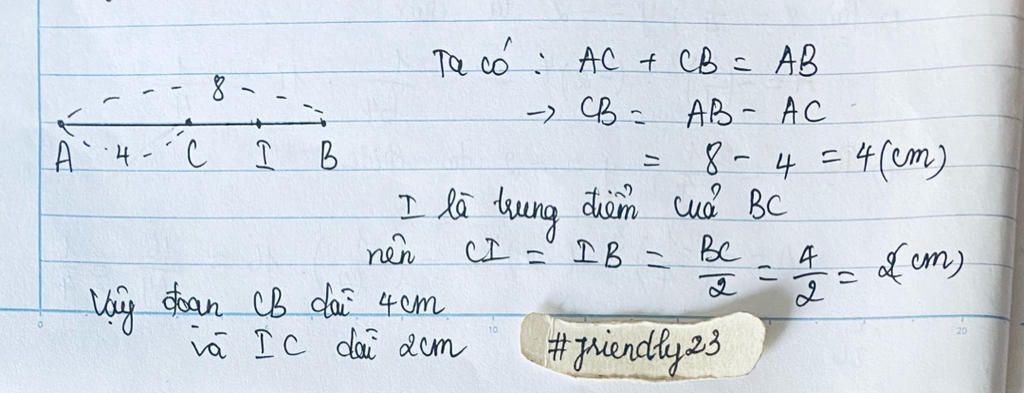 Ta có : AC + CB = AB
8
→ CB = AB - AC
A 4 C I B
= 8 - 4 = 4 (cm)
I là trung điểm của BC
nên CI = IB = BC/2 = 4/2 = 2 (cm)
Vậy đoạn CB dài 4cm
và IC dài 2cm
#friendly23
0 10 20